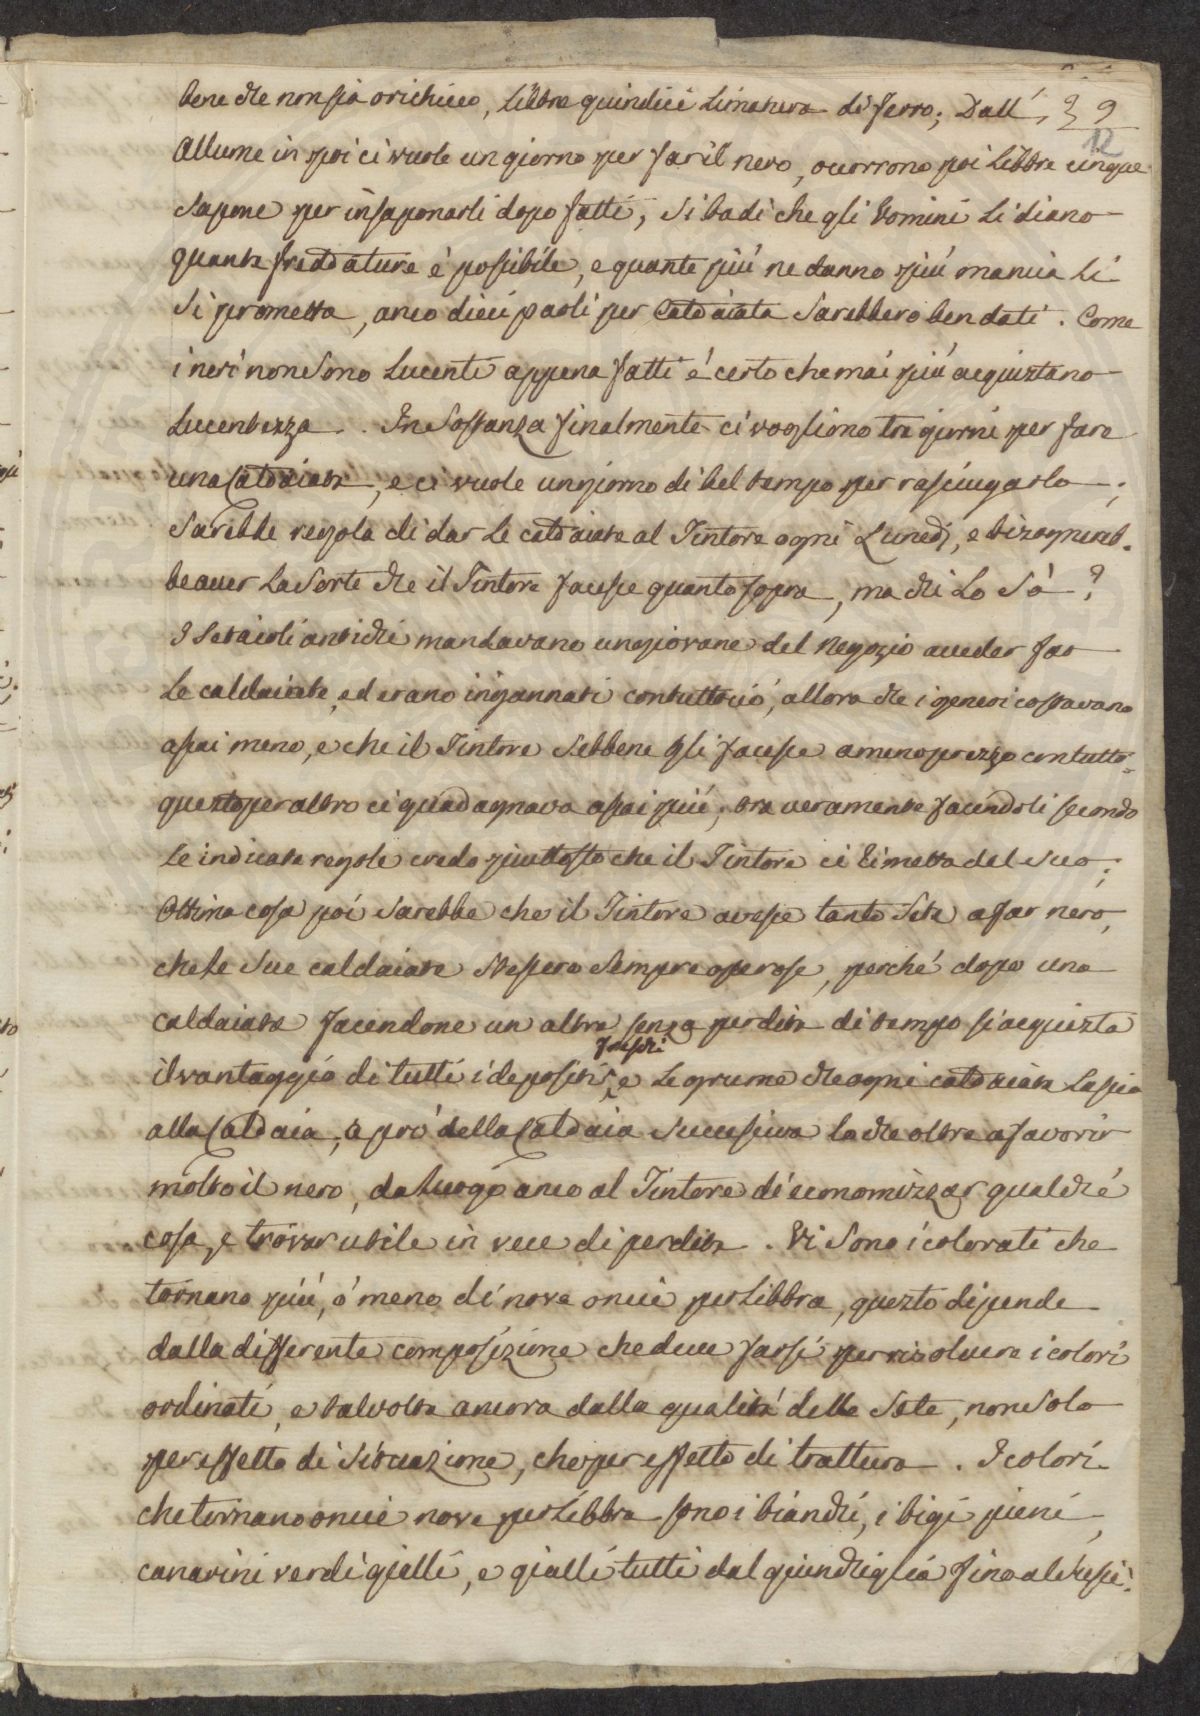 bene che non sia orichicco, Libbre quindici Limatura di ferro; Dall' 39
12
Allume in poi ci vuole un giorno per far il nero, ocorrono poi Libbre cinque
Sapone per insaponarli dopo fatti, Si badi che gli Uomini Li diano
quante freddature è possibile, e quante più ne danno più mancia Li
Si prometta, anco dieci paoli per Caldaiata Sarebbero ben dati. Come
i neri non Sono Lucenti appena fatti è certo che mai più acquistano
Lucentezza. In Sostanza finalmente ci vogliono tre giorni per fare
una Caldaiata, e ci vuole un giorno di bel tempo per rasciugarlo;
Sarebbe regola di dar Le caldaiate al Tintore ogni Lunedì, e bisognereb=
be aver La Sorte che il Tintore facesse quanto sopra, ma chi Lo Sà?
I Setaioli antichi mandavano un giovane del Negozio a veder far
Le caldaiate, ed erano ingannati contuttociò, allora che i generi costavano
assai meno, e che il Tintore Sebbene gli facesse a meno prezzo con tutto
questo per altro ci guadagnava assai più; ora veramente facendoli secondo
Le indicate regole credo piuttosto che il Tintore ci rimetta del Suo;
Ottima cosa poi Sarebbe che il Tintore avesse tante Sete a far nero,
che Le Sue caldaiate Stessero Sempre operose, perché dopo una
caldaiata facendone un altra senza perdita di tempo si acquista
freschi
il vantaggio di tutti i depositi, e Le grume che ogni caldaiata Lascia
alla Caldaia, à prò della Caldaia Successiva lo che oltre a favorir
molto il nero, da Luogo anco al Tintore di economizzar qualche
cosa, e trovar utile in vece di perdita. Vi Sono i colorati che
tornano più, ò meno di nove oncie per Libbra, questo dipende
dalla differente composizione che deve farsi per risolvere i colori
ordinati, e talvolta ancora dalla qualità delle Sete, non Solo
per effetto di Situazione, che per effetto di trattura. I colori
che tornano oncie nove per Libbra sono i bianchi, i bigi pieni,
canarini verdi gielli, e gialli tutti dal giunchiglia fino al